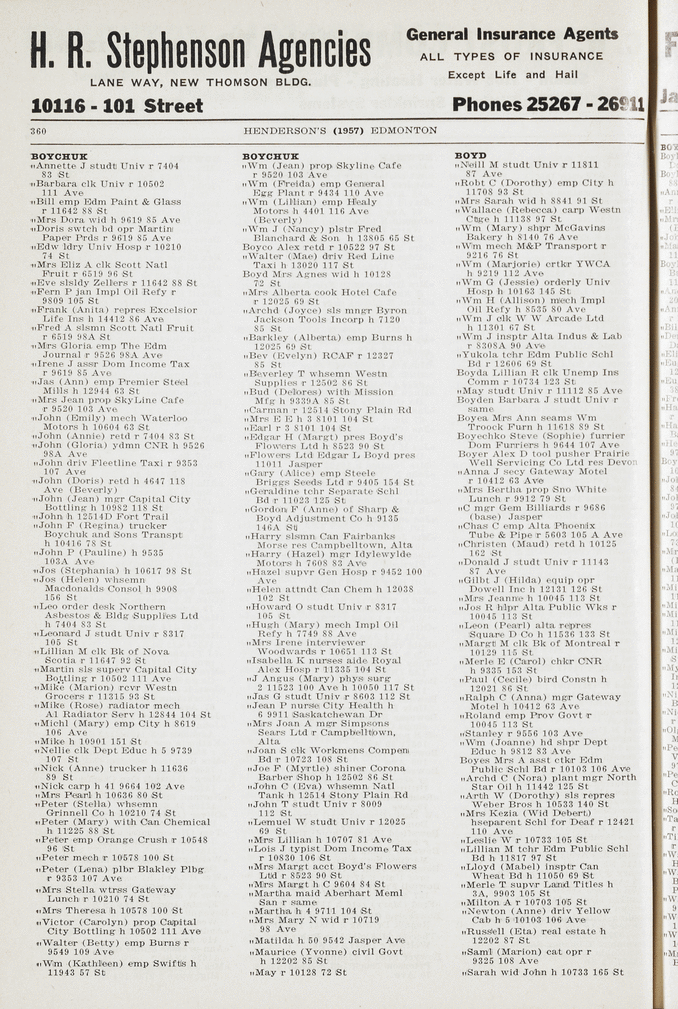 H. R. Stephenson Agencies
LANE WAY, NEW THOMSON BLDG.
General Insurance Agents
ALL TYPES OF INSURANCE
Except Life and Hail
10116 - 101 Street
Phones 25267 - 26911
360
HENDERSON'S (1957) EDMONTON
BOYCHUK
"Annette J studt Univ r 7404
83 St
"Barbara clk Univ r 10502
111 Ave
"Bill emp Edm Paint & Glass
r 11642 88 St
"Mrs Dora wid h 9619 85 Ave
"Doris swtch bd opr Martin
Paper Prds r 9619 85 Ave
"Edw ldry Univ Hosp r 10210
74 St
"Mrs Eliz A clk Scott Natl
Fruit r 6519 96 St
"Eve slsldy Zellers r 11642 88 St
"Fern P jan Impl Oil Refy r
9809 105 St
"Frank (Anita) repres Excelsior
Life Ins h 14412 86 Ave
"Fred A slsmn Scott Natl Fruit
r 6519 98A St
"Mrs Gloria emp The Edm
Journal r 9526 98A Ave
"Irene J assr Dom Income Tax
r 9619 85 Ave
"Jas (Ann) emp Premier Steel
Mills h 12944 63 St
"Mrs Jean prop SkyLine Cafe
r 9520 103 Ave
"John (Emily) mech Waterloo
Motors h 10604 63 St
"John (Annie) retd r 7404 83 St
"John (Gloria) ydmn CNR h 9526
98A Ave
"John driv Fleetline Taxi r 9353
107 Ave
"John (Doris) retd h 4647 118
Ave (Beverly)
"John (Jean) mgr Capital City
Bottling h 10982 118 St
"John h 12514D Fort Trail
"John F (Regina) trucker
Boychuk and Sons Transpt
h 10416 78 St
"John P (Pauline) h 9535
103A Ave
"Jos (Stephania) h 10617 98 St
"Jos (Helen) whsemn
Macdonalds Consol h 9908
156 St
"Leo order desk Northern
Asbestos & Bldg Supplies Ltd
h 7404 83 St
"Leonard J studt Univ r 8317
105 St
"Lillian M clk Bk of Nova
Scotia r 11647 92 St
"Martin sls superv Capital City
Bottling r 10502 111 Ave
"Mike (Marion) rcvr Westn
Grocers r 11315 93 St
"Mike (Rose) radiator mech
A1 Radiator Serv h 12844 104 St
"Michl (Mary) emp City h 8619
106 Ave
"Mike h 10901 151 St
"Nellie clk Dept Educ h 5 9739
107 St
"Nick (Anne) trucker h 11636
89 St
"Nick carp h 41 9664 102 Ave
"Mrs Pearl h 10636 80 St
"Peter (Stella) whsemn
Grinnell Co h 10210 74 St
"Peter (Mary) with Can Chemical
h 11225 88 St
"Peter emp Orange Crush r 10548
96 St
"Peter mech r 10578 100 St
"Peter (Lena) plbr Blakley Plbg
r 9353 107 Ave
"Mrs Stella wtrss Gateway
Lunch r 10210 74 St
"Mrs Theresa h 10578 100 St
"Victor (Carolyn) prop Capital
City Bottling h 10502 111 Ave
"Walter (Betty) emp Burns r
9549 109 Ave
"Wm (Kathleen) emp Swifts h
11943 57 St
BOYCHUK
"Wm (Jean) prop Skyline Cafe
r 9520 103 Ave
"Wm (Freida) emp General
Egg Plant r 9434 110 Ave
"Wm (Lillian) emp Healy
Motors h 4401 116 Ave
(Beverly)
"Wm J (Nancy) plstr Fred
Blanchard & Son h 13805 65 St
Boyco Alex retd r 10522 97 St
"Walter (Mae) driv Red Line
Taxi h 13020 117 St
Boyd Mrs Agnes wid h 10128
72 St
"Mrs Alberta cook Hotel Cafe
r 12025 69 St
"Archd (Joyce) sls mngr Byron
Jackson Tools Incorp h 7120
85 St
"Barkley (Alberta) emp Burns h
12025 69 St
"Bev (Evelyn) RCAF r 12327
85 St
"Beverley T whsemn Westn
Supplies r 12502 86 St
"Bud (Delores) with Mission
Mfg h 9339A 85 St
"Carman r 12514 Stony Plain Rd
"Mrs E E h 3 8101 104 St
"Earl r 3 8101 104 St
"Edgar H (Margt) pres Boyd's
Flowers Ltd r 8523 90 St
"Flowers Ltd Edgar L Boyd pres
11011 Jasper
"Gary (Alice) emp Steele
Briggs Seeds Ltd r 9405 154 St
"Geraldine tchr Separate Schl
Bd r 11023 125 St
"Gordon F (Anne) of Sharp &
Boyd Adjustment Co h 9135
146A St
"Harry slsmn Can Fairbanks
Morse res Campbelltown, Alta
"Harry (Hazel) mgr Idylewylde
Motors h 7608 83 Ave
"Hazel supvr Gen Hosp r 9452 100
Ave
"Helen attndt Can Chem h 12038
102 St
"Howard O studt Univ r 8317
105 St
"Hugh (Mary) mech Impl Oil
Refy h 7749 88 Ave
"Mrs Irene interviewer
Woodwards r 10651 113 St
"Isabella K nurses aide Royal
Alex Hosp r 11335 104 St
"J Angus (Mary) phys surg
2 11523 100 Ave h 10050 117 St
"Jas G studt Univ r 8603 112 St
"Jean P nurse City Health h
6 9911 Saskatchewan Dr
"Mrs Joan A mgr Simpsons
Sears Ltd r Campbelltown,
Alta
"Joan S clk Workmens Compen
Bd r 10723 108 St
"Joe F (Myrtle) shiner Corona
Barber Shop h 12502 86 St
"John C (Eva) whsemn Natl
Tank h 12514 Stony Plain Rd
"John T studt Univ r 8009
112 St
"Lemuel W studt Univ r 12025
69 St
"Mrs Lillian h 10707 81 Ave
"Lois J typist Dom Income Tax
r 10830 106 St
"Mrs Margt acct Boyd's Flowers
Ltd r 8523 90 St
"Mrs Margt h C 9604 84 St
"Martha maid Aberhart Meml
San r same
"Martha h 4 9711 104 St
"Mrs Mary N wid r 10719
98 Ave
"Matilda h 50 9542 Jasper Ave
"Maurice (Yvonne) civil Govt
h 12202 85 St
"May r 10128 72 St
BOYD
"Neill M studt Univ r 11811
87 Ave
"Robt C (Dorothy) emp City h
11708 93 St
"Mrs Sarah wid h 8841 91 St
"Wallace (Rebecca) carp Westn
Ctge h 11138 97 St
"Wm (Mary) shpr McGavins
Bakery h 8140 76 Ave
"Wm mech M&P Transport r
9216 76 St
"Wm (Marjorie) crtkr YWCA
h 9219 112 Ave
"Wm G (Jessie) orderly Univ
Hosp h 10163 145 St
"Wm H (Allison) mech Impl
Oil Refy h 8535 80 Ave
"Wm J clk W W Arcade Ltd
h 11301 67 St
"Wm J insptr Alta Indus & Lab
r 8308A 90 Ave
"Yukola tchr Edm Public Schl
Bd r 12606 69 St
Boyda Lillian R clk Unemp Ins
Comm r 10734 123 St
"May studt Univ r 11112 85 Ave
Boyden Barbara J studt Univ r
same
Boyea Mrs Ann seams Wm
Troock Furn h 11618 89 St
Boyechko Steve (Sophie) furrier
Dom Furriers h 9644 107 Ave
Boyer Alex D tool pusher Prairie
Well Servicing Co Ltd res Devon
"Anna J secy Gateway Motel
r 10412 63 Ave
"Mrs Bertha prop Sno White
Lunch r 9912 79 St
"C mgr Gem Billiards r 9686
(base) Jasper
"Chas C emp Alta Phoenix
Tube & Pipe r 5603 105 A Ave
"Christen (Maud) retd h 10125
162 St
"Donald J studt Univ r 11143
87 Ave
"Gilbt J (Hilda) equip opr
Dowell Inc h 12131 126 St
"Mrs Jeanne h 10045 113 St
"Jos R hlpr Alta Public Wks r
10045 113 St
"Leon (Pearl) alta repres
Square D Co h 11536 133 St
"Margt M clk Bk of Montreal r
10129 115 St
"Merle E (Carol) chkr CNR
h 9335 153 St
"Paul (Cecile) bird Constn h
12021 86 St
"Ralph C (Anna) mgr Gateway
Motel h 10412 63 Ave
"Roland emp Prov Govt r
10045 113 St
"Stanley r 9556 103 Ave
"Wm (Joanne) hd shpr Dept
Educ h 9812 83 Ave
Boyes Mrs A asst ctkr Edm
Public Schl Bd r 10103 106 Ave
"Archd C (Nora) plant mgr North
Star Oil h 11442 125 St
"Arth W (Dorothy) sls repres
Weber Bros h 10533 140 St
"Mrs Kezia (Wid Debert)
hseparent Schl for Deaf r 12421
110 Ave
"Leslie W r 10733 105 St
"Lillian M tchr Edm Public Schl
Bd h 11817 97 St
"Lloyd (Mabel) insptr Can
Wheat Bd h 11050 69 St
"Merle T supvr Land Titles h
3A, 9903 105 St
"Milton A r 10703 105 St
"Newton (Anne) driv Yellow
Cab h 5 10103 106 Ave
"Russell (Eta) real estate h
12202 87 St
"Saml (Marion) cat opr r
9325 108 Ave
"Sarah wid John h 10733 165 St